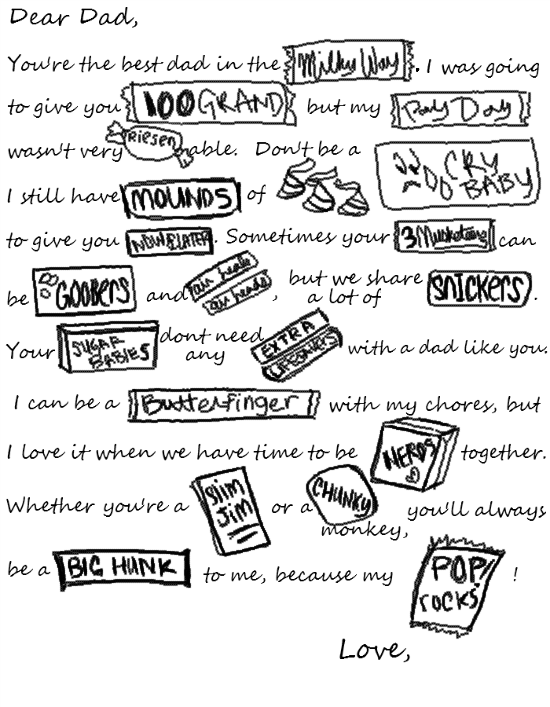 Dear Dad,
You're the best dad in the Milky Way. I was going
to give you 100 GRAND but my Pay Day
wasn't very RIESEN able. Don't be a CRY BABY
I still have MOUNDS of
to give you NOW & LATER. Sometimes your 3 Musketeers can
be GOOBERS and air heads air heads, but we share a lot of SNICKERS.
Your SUGAR BABIES dont need any EXTRA with a dad like you.
I can be a ButterFinger with my chores, but
I love it when we have time to be NERDS together.
Whether you're a Slim Jim or a CHUNKY monkey, you'll always
be a BIG HUNK to me, because my POP rocks!
Love,